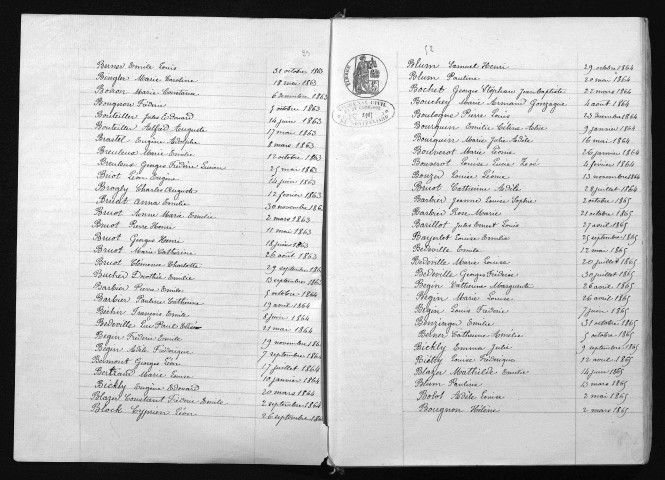 Berner Emile Louis 31 octobre 1863
Bingler Marie Caroline 18 mai 1863
Boiron Marie Constance 6 decembre 1863
Bougnon Fréderic 5 octobre 1863
Bouteiller Jules Edouard 14 juin 1863
Bouteiller Alfred Auguste 17 mai 1863
Brastel Eugène Adolphe 2 mars 1863
Breuleux Marie Emilie 12 octobre 1863
Breuleux Georges Fréderic Lucien 25 mai 1863
Briot Léon Eugène 14 juin 1863
Brogly Charles Auguste 12 février 1863
Bruot Anna Emilie 30 novembre 1863
Bruot Anne Marie Emilie 2 mars 1863
Bruot Pierre Henri 11 mai 1863
Bruot Georges Henri 18 juin 1863
Bruot Marie Catherine 26 août 1863
Bruot Clémence Charlotte 29 septembre 1863
Bucher Dorothée Emilie 13 septembre 1863
Barbier Pierre Emile 5 octobre 1864
Barbier Pauline Catherine 19 avril 1864
Bécher François Emile 8 juin 1864
Bedeville Luc Paul 21 mai 1864
Bégin Fréderic Emile 19 novembre 1864
Bégin Adèle Fréderique 7 septembre 1864
Bermont Georges Léon 17 juillet 1864
Bertrand Marie Louise 10 janvier 1864
Bickly Eugène Edouard 20 mars 1864
Blazer Constant Fréderic Emile 2 septembre 1864
Block Cyprien Léon 26 septembre 1864
52
Blum Samuel Henri 29 octobre 1864
Blum Pauline 20 mai 1864
Bochet Georges Stéphan Jean Baptiste 22 mars 1864
Bouchey Marie Armand Gonzague 4 août 1864
Boulogne Pierre Louis 23 decembre 1864
Bourquin Emilie Céline 9 janvier 1864
Bourquin Marie Julie Adèle 16 mai 1864
Bourquin Marie Léonie 26 janvier 1864
Bouverot Louise Lucie 4 février 1864
Bouzer Louise Léonie 13 novembre 1864
Bruot Catherine Adèle 28 juillet 1864
Barbier Jeanne Louise Sophie 2 octobre 1865
Barbier Rose Marie 21 octobre 1865
Barillot Jules Ernest Louis 27 avril 1865
Louise Emilie 25 septembre 1865
Bedeville Emile 12 mai 1865
Bedeville Marie Louise 20 juillet 1865
Bedeville Georges Fréderic 30 juillet 1865
Bégin Catherine Marguerite 26 août 1865
Bégin Marie Louise 26 août 1865
Bégin Louis Fréderic 7 juin 1865
Benzinger Emilie 31 octobre 1865
Berner Catherine Amélie 5 octobre 1865
Bickly Emma Julie 9 septembre 1865
Bietry Louise Fréderique 12 avril 1865
Blazer Mathilde Emilie 14 juin 1865
Blum Pauline 13 mars 1865
Bolot Adèle Louise 2 mai 1865
Bougnon Hélène 2 mars 1865